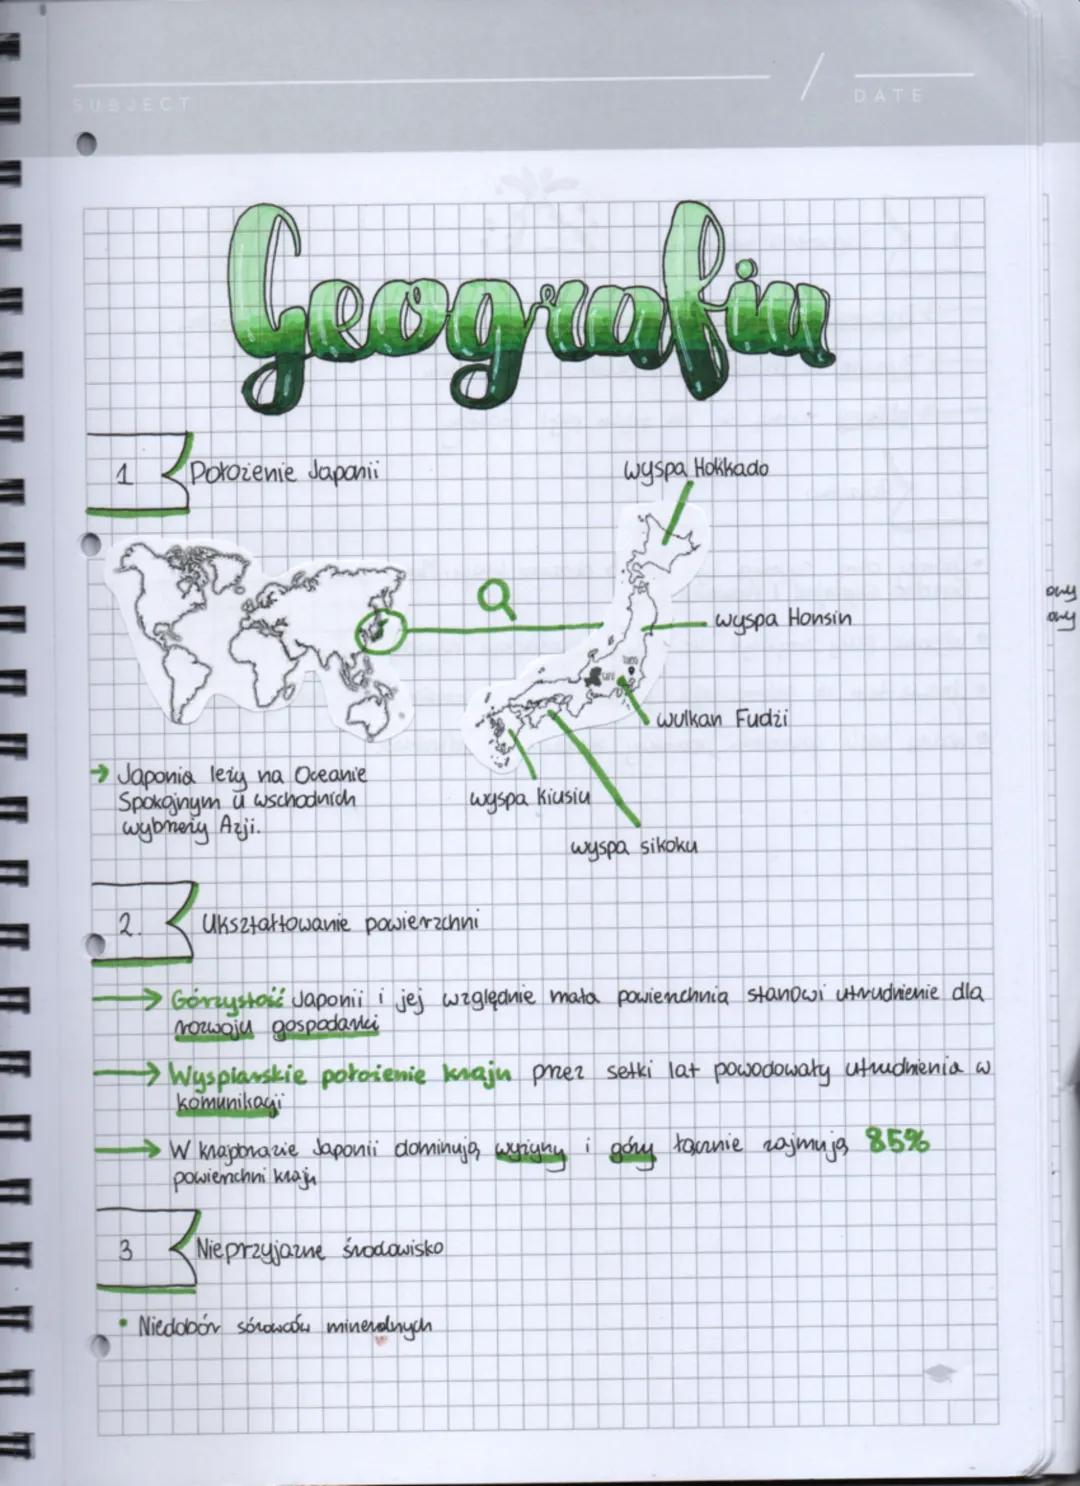 SUBJECT
/ DATE
Geografia
1 Położenie Japonii
wyspa Hokkado
wyspa Honsin
wulkan Fudżi
wyspa Kiusiu
wyspa sikoku
→ Japonia leży na Oceanie
Spokojnym u wschodnich
wybrzeży Azji.
2. Ukształtowanie powierzchni
→ Górzystość Japonii i jej względnie mała powierzchnia stanowi utrudnienie dla
rozwoju gospodarki
→ Wyspiarskie położenie kraju przez setki lat powodowały utrudnienia w
komunikacji
→ W krajobrazie Japonii dominują wyżyny i góry łącznie zajmują 85%
powierzchni kraju
3 Nieprzyjazne środowisko
• Niedobór surowców mineralnych
owy
owy